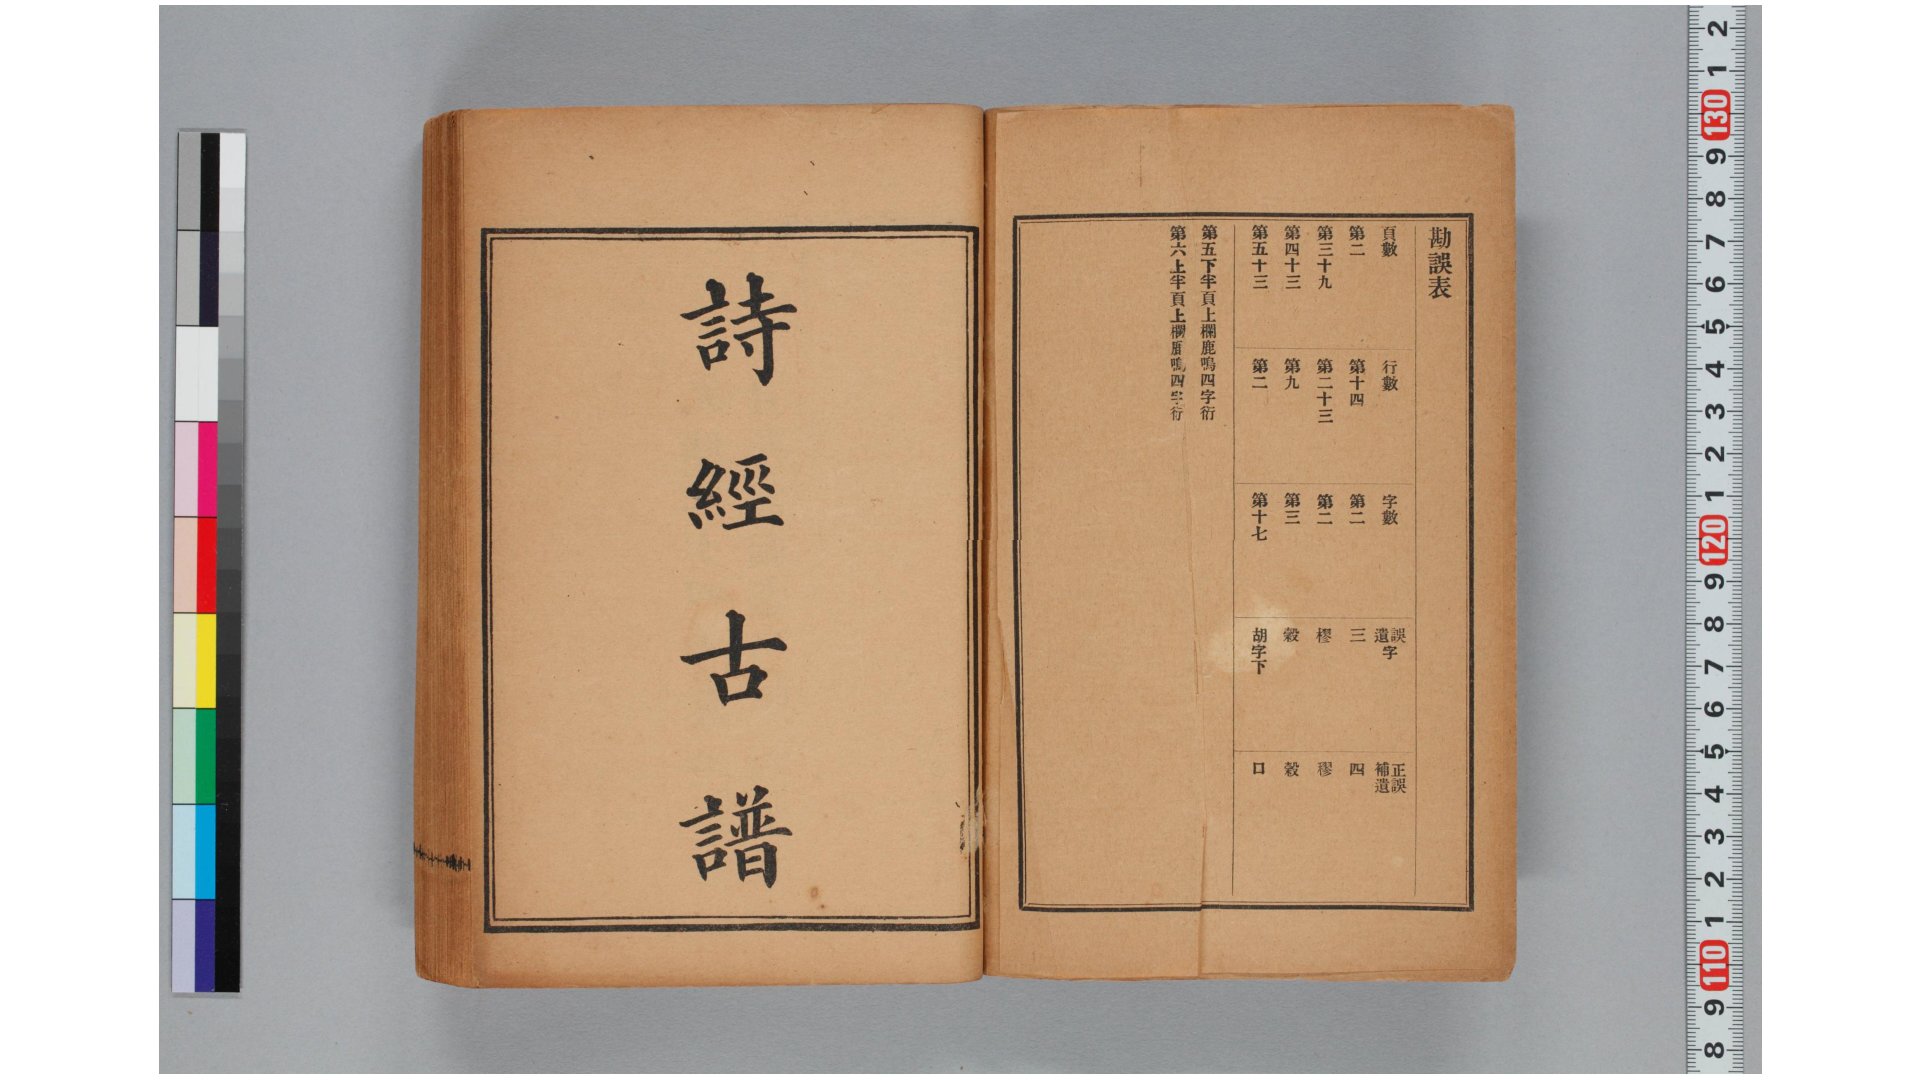 勘誤表
頁數 行數 字數 誤遺字 正誤補遺
第二 第十四 第二 三 四
第三十九 第二十三 第二 樛 穋
第四十三 第九 第三
第五十三 第二 第十七 胡字下 口
第五下半頁上欄鹿鳴四字衍
第六上半頁上欄鹿鳴四字衍
詩經古譜
2 1 130 9 8 7 6 5 4 3 2 1 120 9 8 7 6 5 4 3 2 1 110 9 8